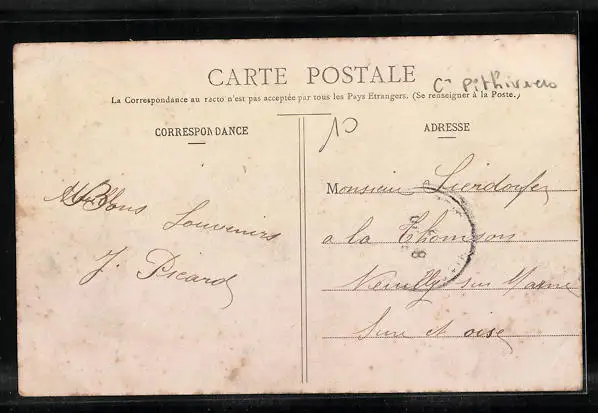 CARTE POSTALE
Cⁿ Pithiviers
La Correspondance au racto n'est pas acceptée par tous les Pays Etrangers. (Se renseigner à la Poste.)
10
CORRESPONDANCE
ADRESSE
Bons Souvenirs
J. Picard
Monsieur Lierdorfer
a la Thomson
Neuilly sur Marne
Seine et oise